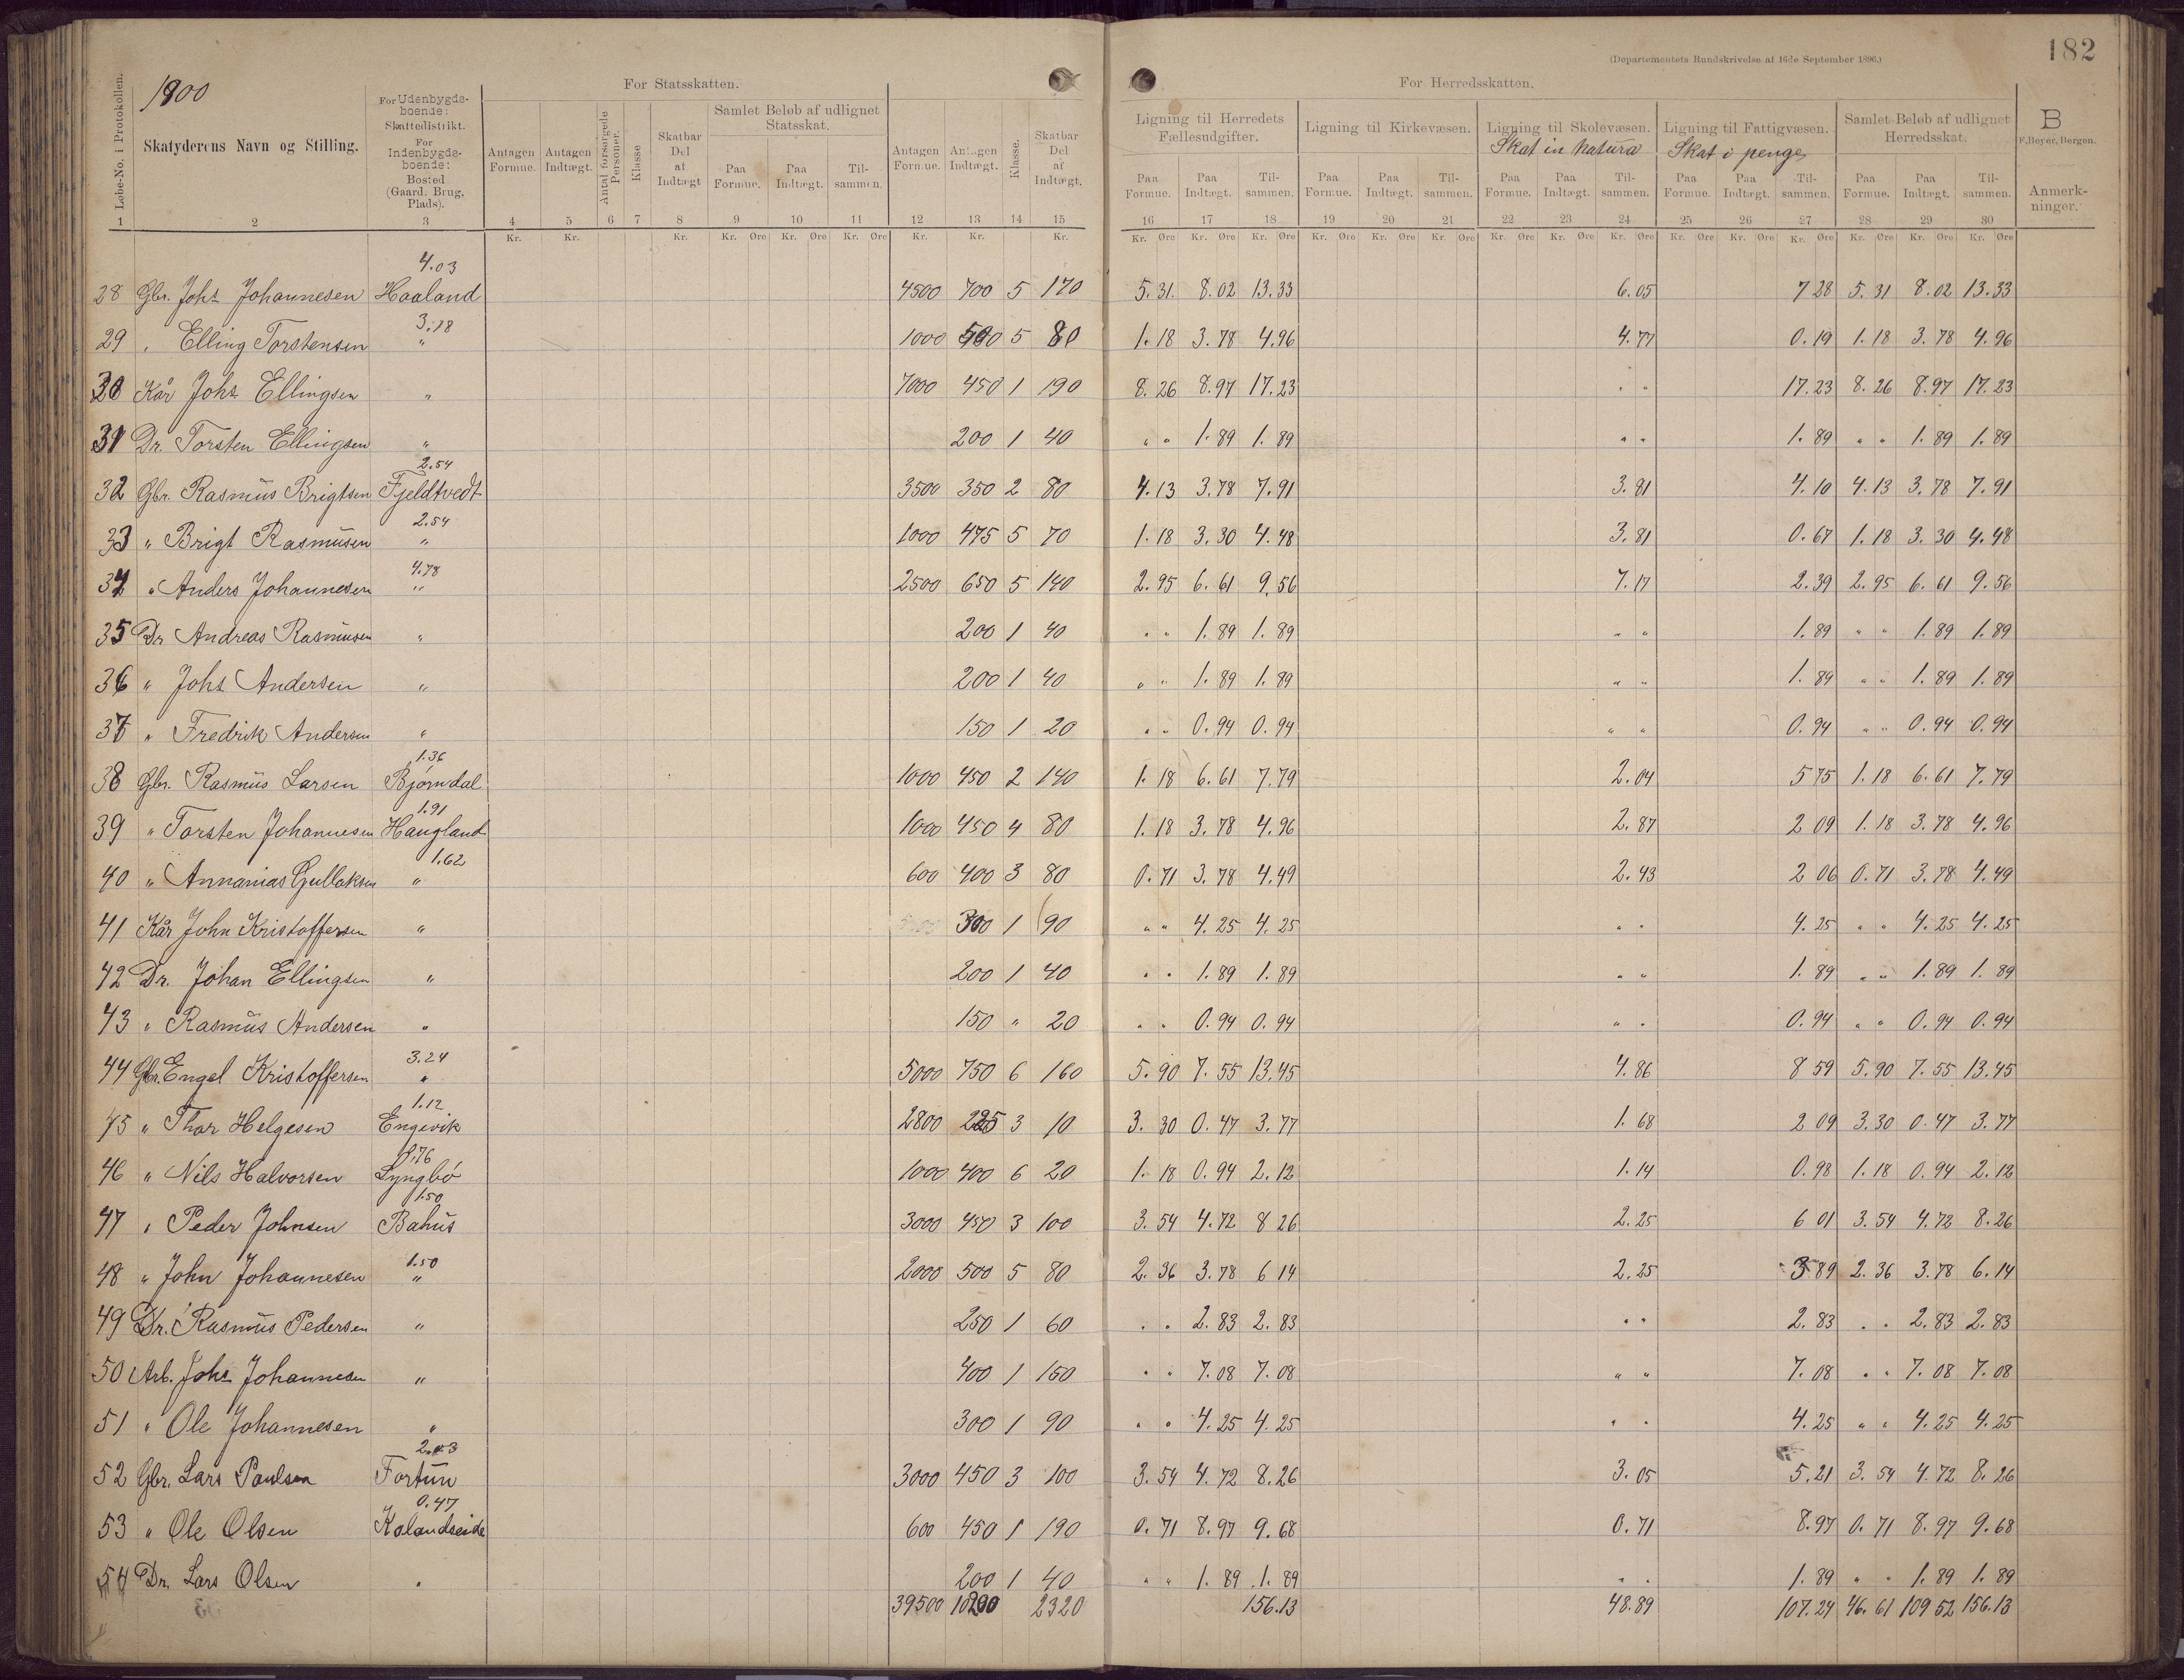 182
(Departementets Rundskrivelse af 16de September 1896.)
1900
For Statsskatten.
For Herredsskatten.
Løbe-No. i Protokollen.
Skatyderens Navn og Stilling.
For Udenbygdsboende: Skattedistrikt. For Indenbygdsboende: Bosted (Gaard, Brug, Plads).
Antagen Formue.
Antagen Indtægt.
Antal forsørgede Personer.
Klasse
Skatbar Del af Indtægt
Samlet Beløb af udlignet Statsskat.
Paa Formue. Paa Indtægt. Tilsammen.
Antagen Formue.
Antagen Indtægt.
Klasse.
Skatbar Del af Indtægt.
Ligning til Herredets Fællesudgifter.
Ligning til Kirkevæsen.
Ligning til Skolevæsen.
Skat in natura
Ligning til Fattigvæsen.
Skat i penge
Samlet Beløb af udlignet Herredsskat.
B
F. Beyer, Bergen.
Anmerkninger.
Paa Formue. Paa Indtægt. Tilsammen. Paa Formue. Paa Indtægt. Tilsammen. Paa Formue. Paa Indtægt. Tilsammen. Paa Formue. Paa Indtægt. Tilsammen. Paa Formue. Paa Indtægt. Tilsammen.
1 2 3 4 5 6 7 8 9 10 11 12 13 14 15 16 17 18 19 20 21 22 23 24 25 26 27 28 29 30
Kr. Kr. Kr. Kr. Øre Kr. Øre Kr. Øre Kr. Kr. Kr. Kr. Øre Kr. Øre Kr. Øre Kr. Øre Kr. Øre Kr. Øre Kr. Øre Kr. Øre Kr. Øre Kr. Øre Kr. Øre Kr. Øre Kr. Øre Kr. Øre Kr. Øre
4.03
28 Gbr. Johs Johannesen Haaland 4500 700 5 170 5.31 8.02 13.33 6.05 7 28 5.31 8.02 13.33
3.18
29 " Elling Torstensen " 1000 500 5 80 1.18 3.78 4.96 4.77 0.19 1.18 3.78 4.96
30 Kår Johs Ellingsen " 7000 450 1 190 8.26 8.97 17.23 " " 17.23 8.26 8.97 17.23
31 Dr. Torsten Ellingsen " 200 1 40 " " 1.89 1.89 " " 1.89 " " 1.89 1.89
2.54
32 Gbr. Rasmus Brigtsen Fjeldtvedt 3500 350 2 80 4.13 3.78 7.91 3.81 4.10 4.13 3.78 7.91
2.54
33 " Brigt Rasmusen " 1000 475 5 70 1.18 3.30 4.48 3.81 0.67 1.18 3.30 4.48
4.78
34 " Anders Johannesen " 2500 650 5 140 2.95 6.61 9.56 7.17 2.39 2.95 6.61 9.56
35 Dr Andreas Rasmusen " 200 1 40 " " 1.89 1.89 " " 1.89 " " 1.89 1.89
36 " Johs Andersen " 200 1 40 " " 1.89 1.89 " " 1.89 " " 1.89 1.89
37 " Fredrik Andersen " 150 1 20 " " 0.94 0.94 " " 0.94 " " 0.94 0.94
1.36
38 Gbr. Rasmus Larsen Bjørndal 1000 450 2 140 1.18 6.61 7.79 2.04 5 75 1.18 6.61 7.79
1.91
39 " Torsten Johannesen Haugland 1000 450 4 80 1.18 3.78 4.96 2.87 2 09 1.18 3.78 4.96
1.62
40 " Annanias Gullaksen " 600 400 3 80 0.71 3.78 4.49 2.43 2 06 0.71 3.78 4.49
41 Kår John Kristoffersen " 300 1 90 " " 4.25 4.25 " " 4.25 " " 4.25 4.25
42 Dr. Johan Ellingsen " 200 1 40 " " 1.89 1.89 " " 1.89 " " 1.89 1.89
43 " Rasmus Andersen " 150 " 20 " " 0.94 0.94 " " 0.94 " " 0.94 0.94
3.24
44 Gbr. Engel Kristoffersen " 5000 750 6 160 5.90 7.55 13.45 4.86 8 59 5.90 7.55 13.45
1.12
45 " Thor Helgesen Engevik 2800 225 3 10 3.30 0.47 3.77 1.68 2 09 3.30 0.47 3.77
0.76
46 " Nils Halvorsen Lyngbø 1000 400 6 20 1.18 0.94 2.12 1.14 0.98 1.18 0.94 2.12
1.50
47 " Peder Johnsen Bahus 3000 450 3 100 3.54 4.72 8 26 2.25 6 01 3.54 4.72 8.26
1.50
48 " John Johannesen " 2000 500 5 80 2.36 3.78 6 14 2.25 3 89 2.36 3.78 6.14
49 Dr. Rasmus Pedersen " 250 1 60 " " 2.83 2.83 " " 2.83 " " 2.83 2.83
50 Arb. Johs Johannesen " 400 1 150 " " 7.08 7.08 " " 7.08 " " 7.08 7.08
51 " Ole Johannesen " 300 1 90 " " 4.25 4.25 " " 4.25 " " 4.25 4.25
2.03
52 Gbr. Lars Paulsen Fortun 3000 450 3 100 3.54 4.72 8.26 3.05 5.21 3.54 4.72 8.26
0.47
53 " Ole Olsen Kalandseide 600 450 1 190 0.71 8.97 9.68 0.71 8.97 0.71 8.97 9.68
54 Dr. Lars Olsen " 200 1 40 " " 1.89 1.89 " " 1.89 " " 1.89 1.89
39500 10200 2320 156.13 48.89 107.24 46.61 109 52 156.13